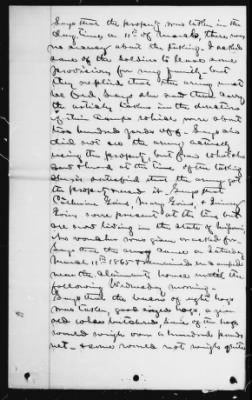 Says that the property was taken in the
day time on 11th of March, there was
no secrecy about the taking. I asked
some of the soldiers to leave some
provisions for my family but
they replied that the army must
be fed. Says she saw them carry
the articles taken in the direction
of their camps which were about
two hundred yards off. Says she
did not see the army actually
using the property, but from what she
saw at the time of the taking
she is satisfied that the army got
the property and it. Says that
Catherine Goins, Mary Goins, &
Goins were present at the time but
are now living in the state of
no voucher was given or asked for
Says that the army came on Saturday
March 11th 1865 & remained in camp
near the alimentary house until the
following Wednesday morning.
Says that the bacon of eight hogs
was taken, good sized hogs, a year
old when butchered, some of the hogs
would weigh over a hundred pounds
net - some would not weigh quite